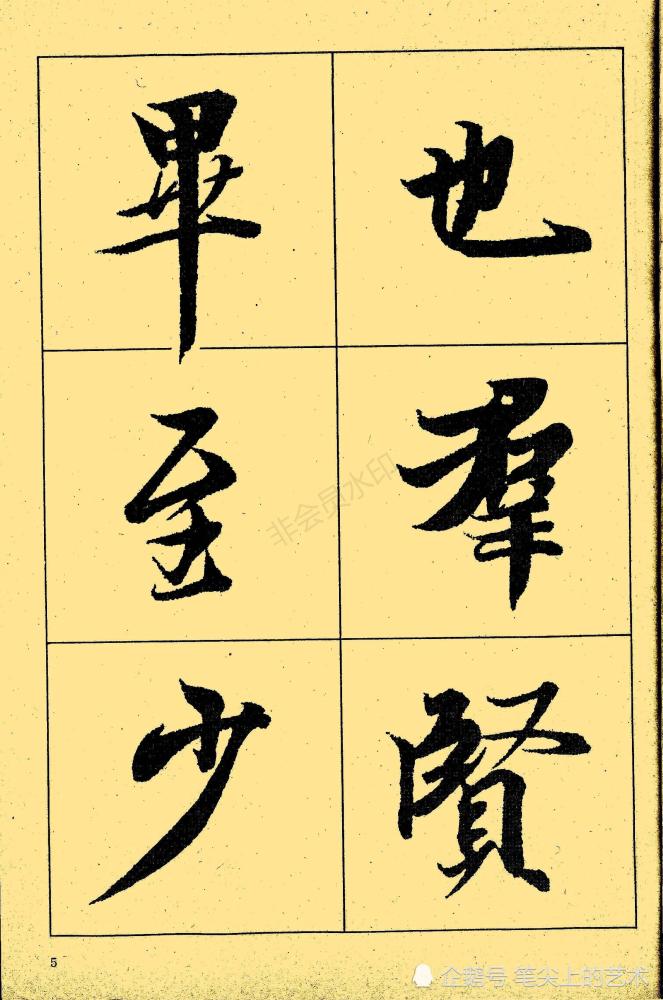 也群賢
畢至少
非会员水印
5
企鹅号 笔尖上的艺术